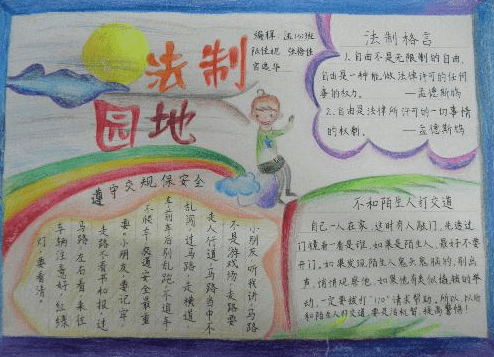 法制
园地
编辑：
法制格言
1.自由不是无限制的自由,
自由是一种能做法律许可的任何
事的权力。 —孟德斯鸠
2.自由是法律所许可的一切事情
的权利。 —孟德斯鸠
遵守交规保安全
小朋友听我讲,马路
不是游戏场,走路要
走人行道,马路当中不
乱闯,过马路,走横道
车前车后别乱跑,不追车
不爬车,交通安全最重
要,小朋友,要记牢,
走路不看书和报,过
马路,左右看,来往
车辆注意好,红绿
灯,要看清。
不和陌生人打交道
自己一人在家,这时有人敲门,先透过
门镜看一看是谁,如果是陌生人,最好不要
开门。如果发现陌生人鬼头鬼脑的,别出
声,悄悄观察他,如果他有类似撬锁的举
动,一定要拨打"110"请求帮助。所以,以后
和陌生人打交道,要灵活机智,提高警惕!